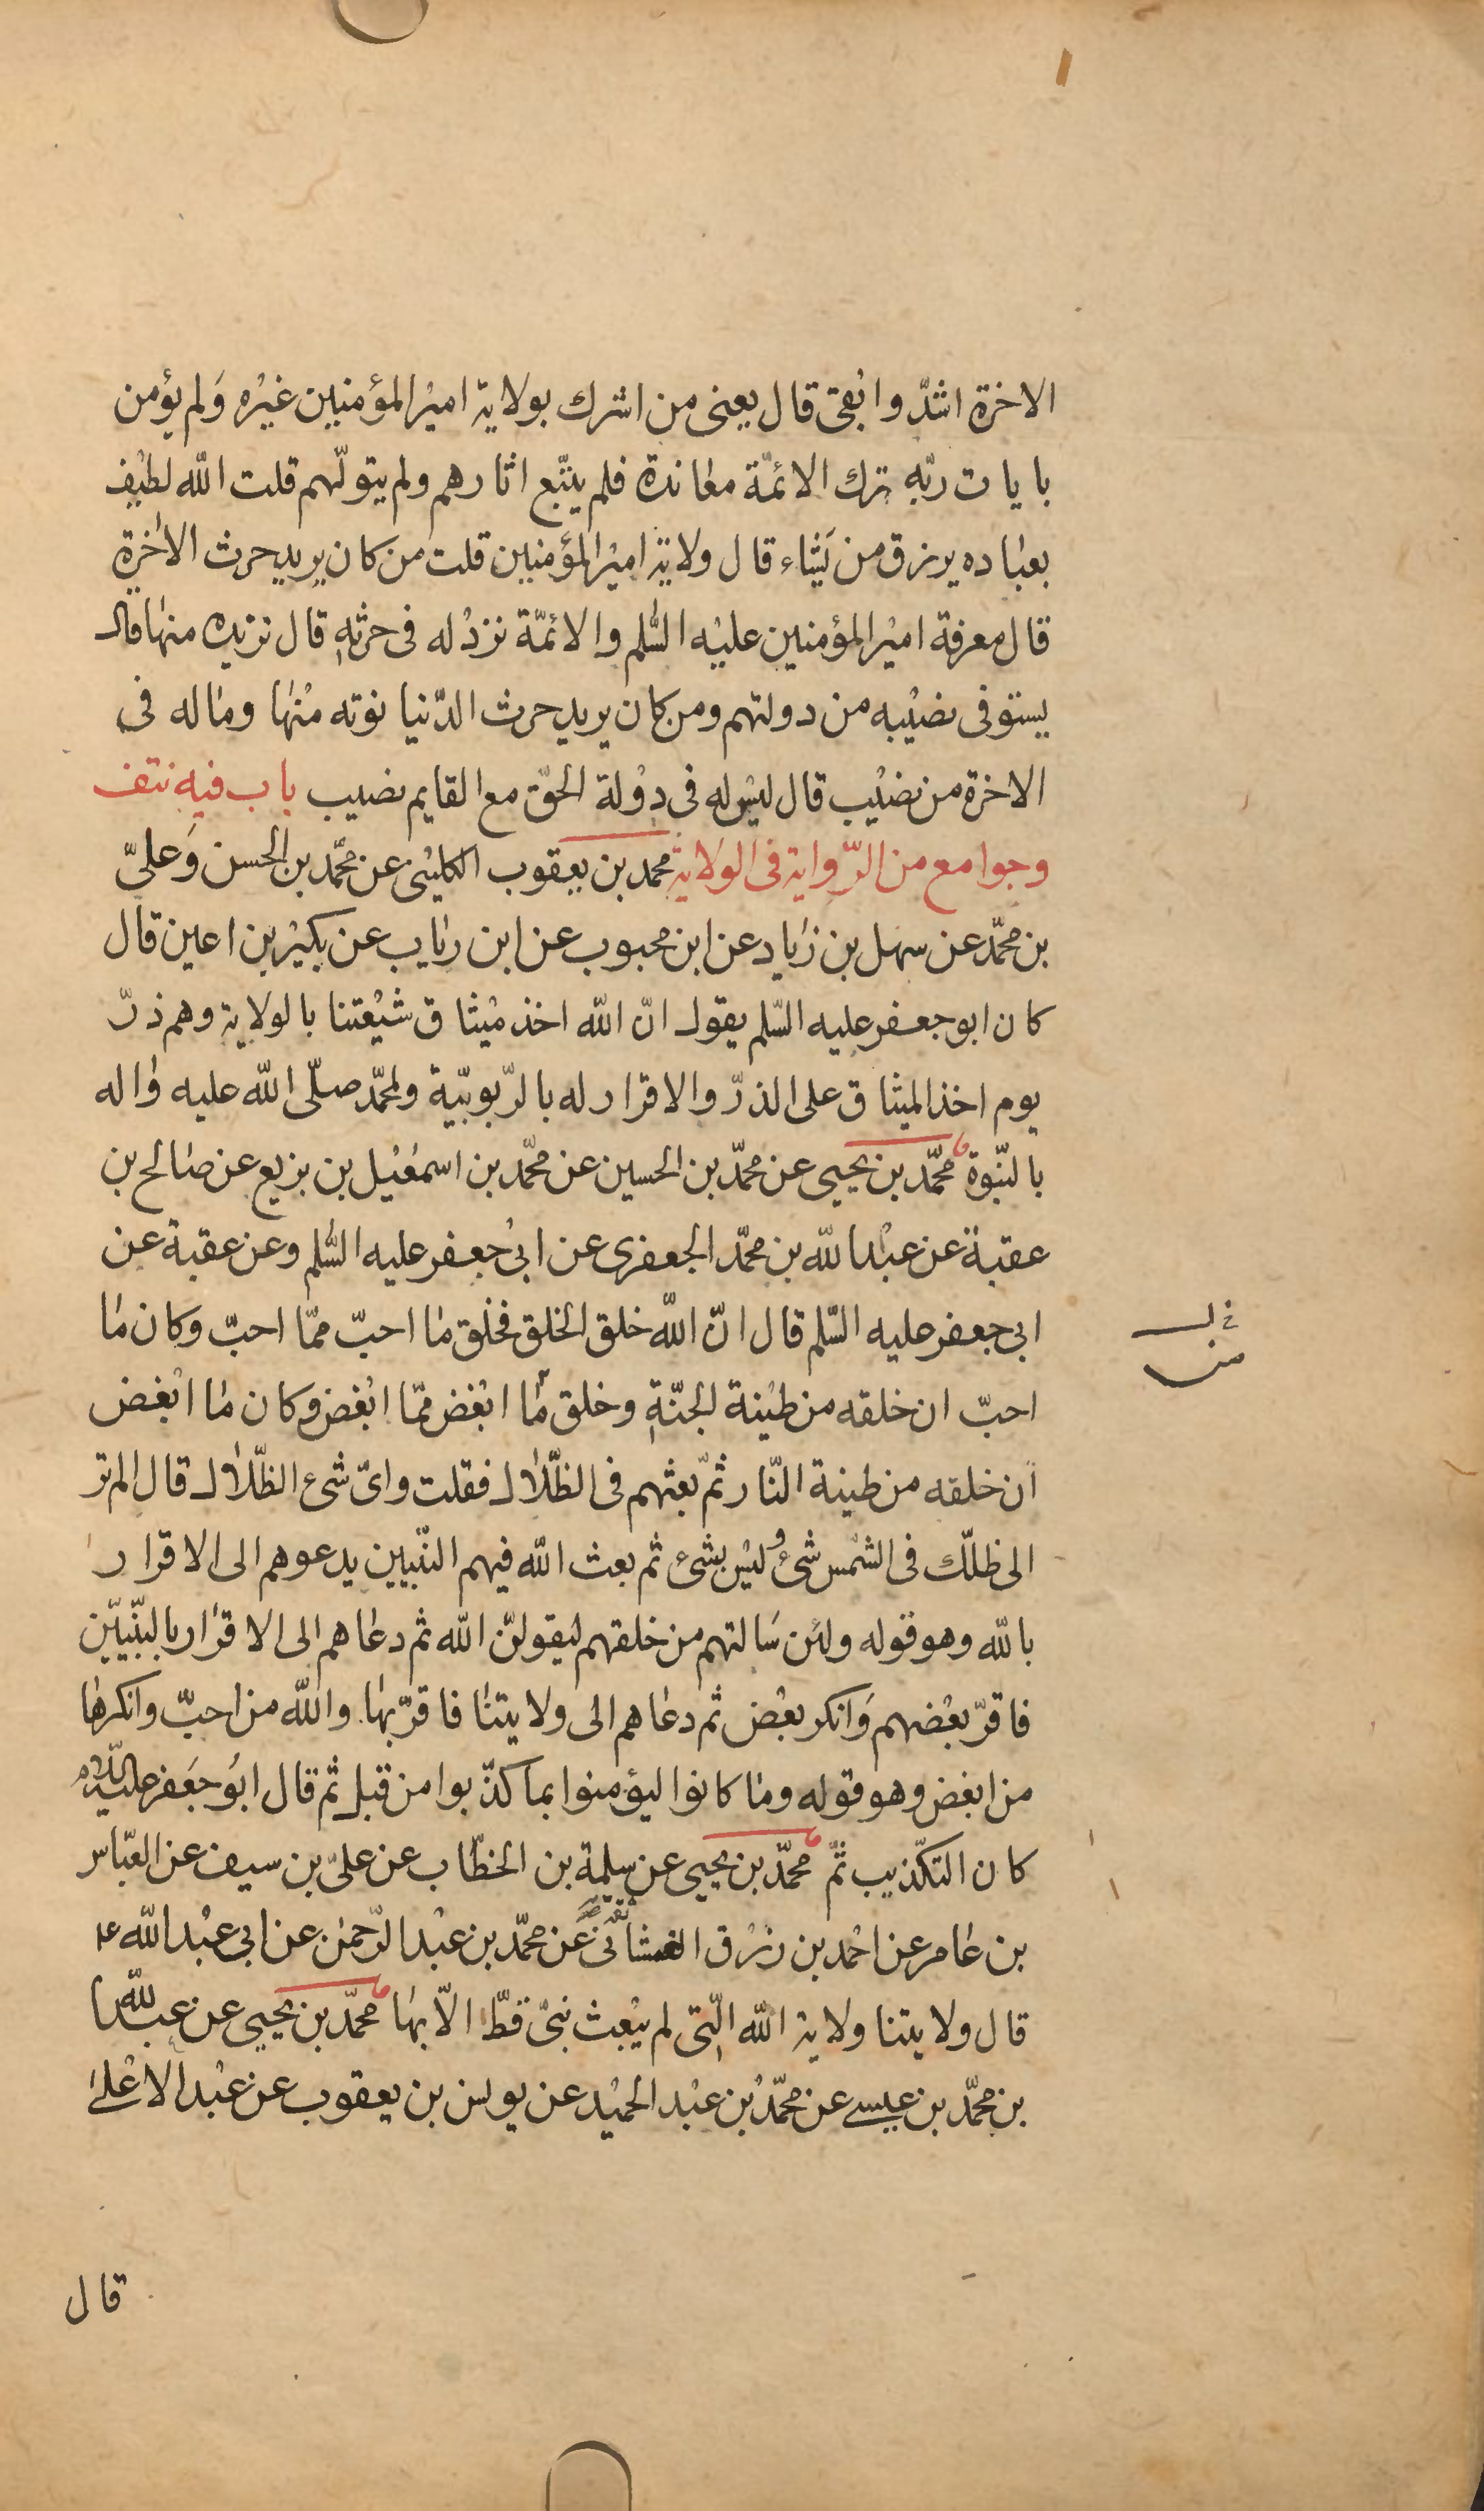 الاخرة اشدّ وابقى قال يعنى من اشرك بولاية امير المؤمنين غيره ولم يؤمن
بايات ربّه ترك الائمّة معاندة فلم يتّبع اثارهم ولم يتولّهم قلت الله لطيف
بعباده يرزق من يَشاء قال ولاية امير المؤمنين قلت من كان يريد حرث الاخرة
قال معرفة امير المؤمنين عليه السّلم والائمّة نزد له فى حرثه قال نزيده منها قال
يستوفى نصيبه من دولتهم ومن كان يريد حرث الدّنيا نوته منها وماله فى
الاخرة من نصيب قال ليس له فى دولة الحقّ مع القايم نصيب باب فيه نتف
وجوامع من الرّواية فى الولاية محمد بن يعقوب الكلينى عن محمّد بن الحسن وَعلىّ
بن محمّد عن سهل بن زياد عن ابن محبوب عن ابن رئاب عن بكير بن اعين قال
كان ابو جعفر عليه السّلم يقول انّ الله اخذ ميثاق شيعتنا بالولاية وهم ذرّ
يوم اخذ الميثاق على الذرّ والاقرار له بالرّبوبيّة ولمحمّد صلّى الله عليه واله
بالنّبوة محمّد بن يحيى عن محمّد بن الحسين عن محمّد بن اسمعيل بن بزيع عن صالح بن
عقبة عن عبد الله بن محمّد الجعفرى عن ابى جعفر عليه السّلم وعن عقبة عن
ابى جعفر عليه السّلم قال انّ الله خلق الخلق فخلق ما احبّ ممّا احبّ وكان ما
احبّ ان خلقه من طينة الجنّة وخلق ما ابغض ممّا ابغض وكان ما ابغض
ان خلقه من طينة النّار ثمّ بعثهم فى الظّلال فقلت واىّ شىء الظّلال قال الم تر
الى ظلّك فى الشمس شىء وليس بشىء ثم بعث الله فيهم النّبيين يدعوهم الى الاقرار
بالله وهو قوله ولئن سَالتهم من خلقهم ليقولنّ الله ثم دعاهم الى الاقرار بالنّبيّين
فاقرّ بعضهم وَانكر بعض ثم دعاهم الى ولايتنا فاقرّ بها والله من احبّ وانكرها
من ابغض وهو قوله وما كانوا ليؤمنوا بما كذّبوا من قبل ثم قال ابو جَعفر عليه السّلام
كان التكذيب ثمّ محمّد بن يحيى عن سلمة بن الخطّاب عن علىّ بن سيف عن العبّاس
بن عامر عن احمد بن رزق الغمشانى عن محمّد بن عبد الرّحمن عن ابى عبد الله ع
قال ولايتنا ولاية الله الّتى لم يبعث نبىّ قطّ الاّ بها محمّد بن يحيى عن عبد الله
بن محمّد بن عيسى عن محمّد بن عبد الحميد عن يونس بن يعقوب عن عبد الاعلى
قال